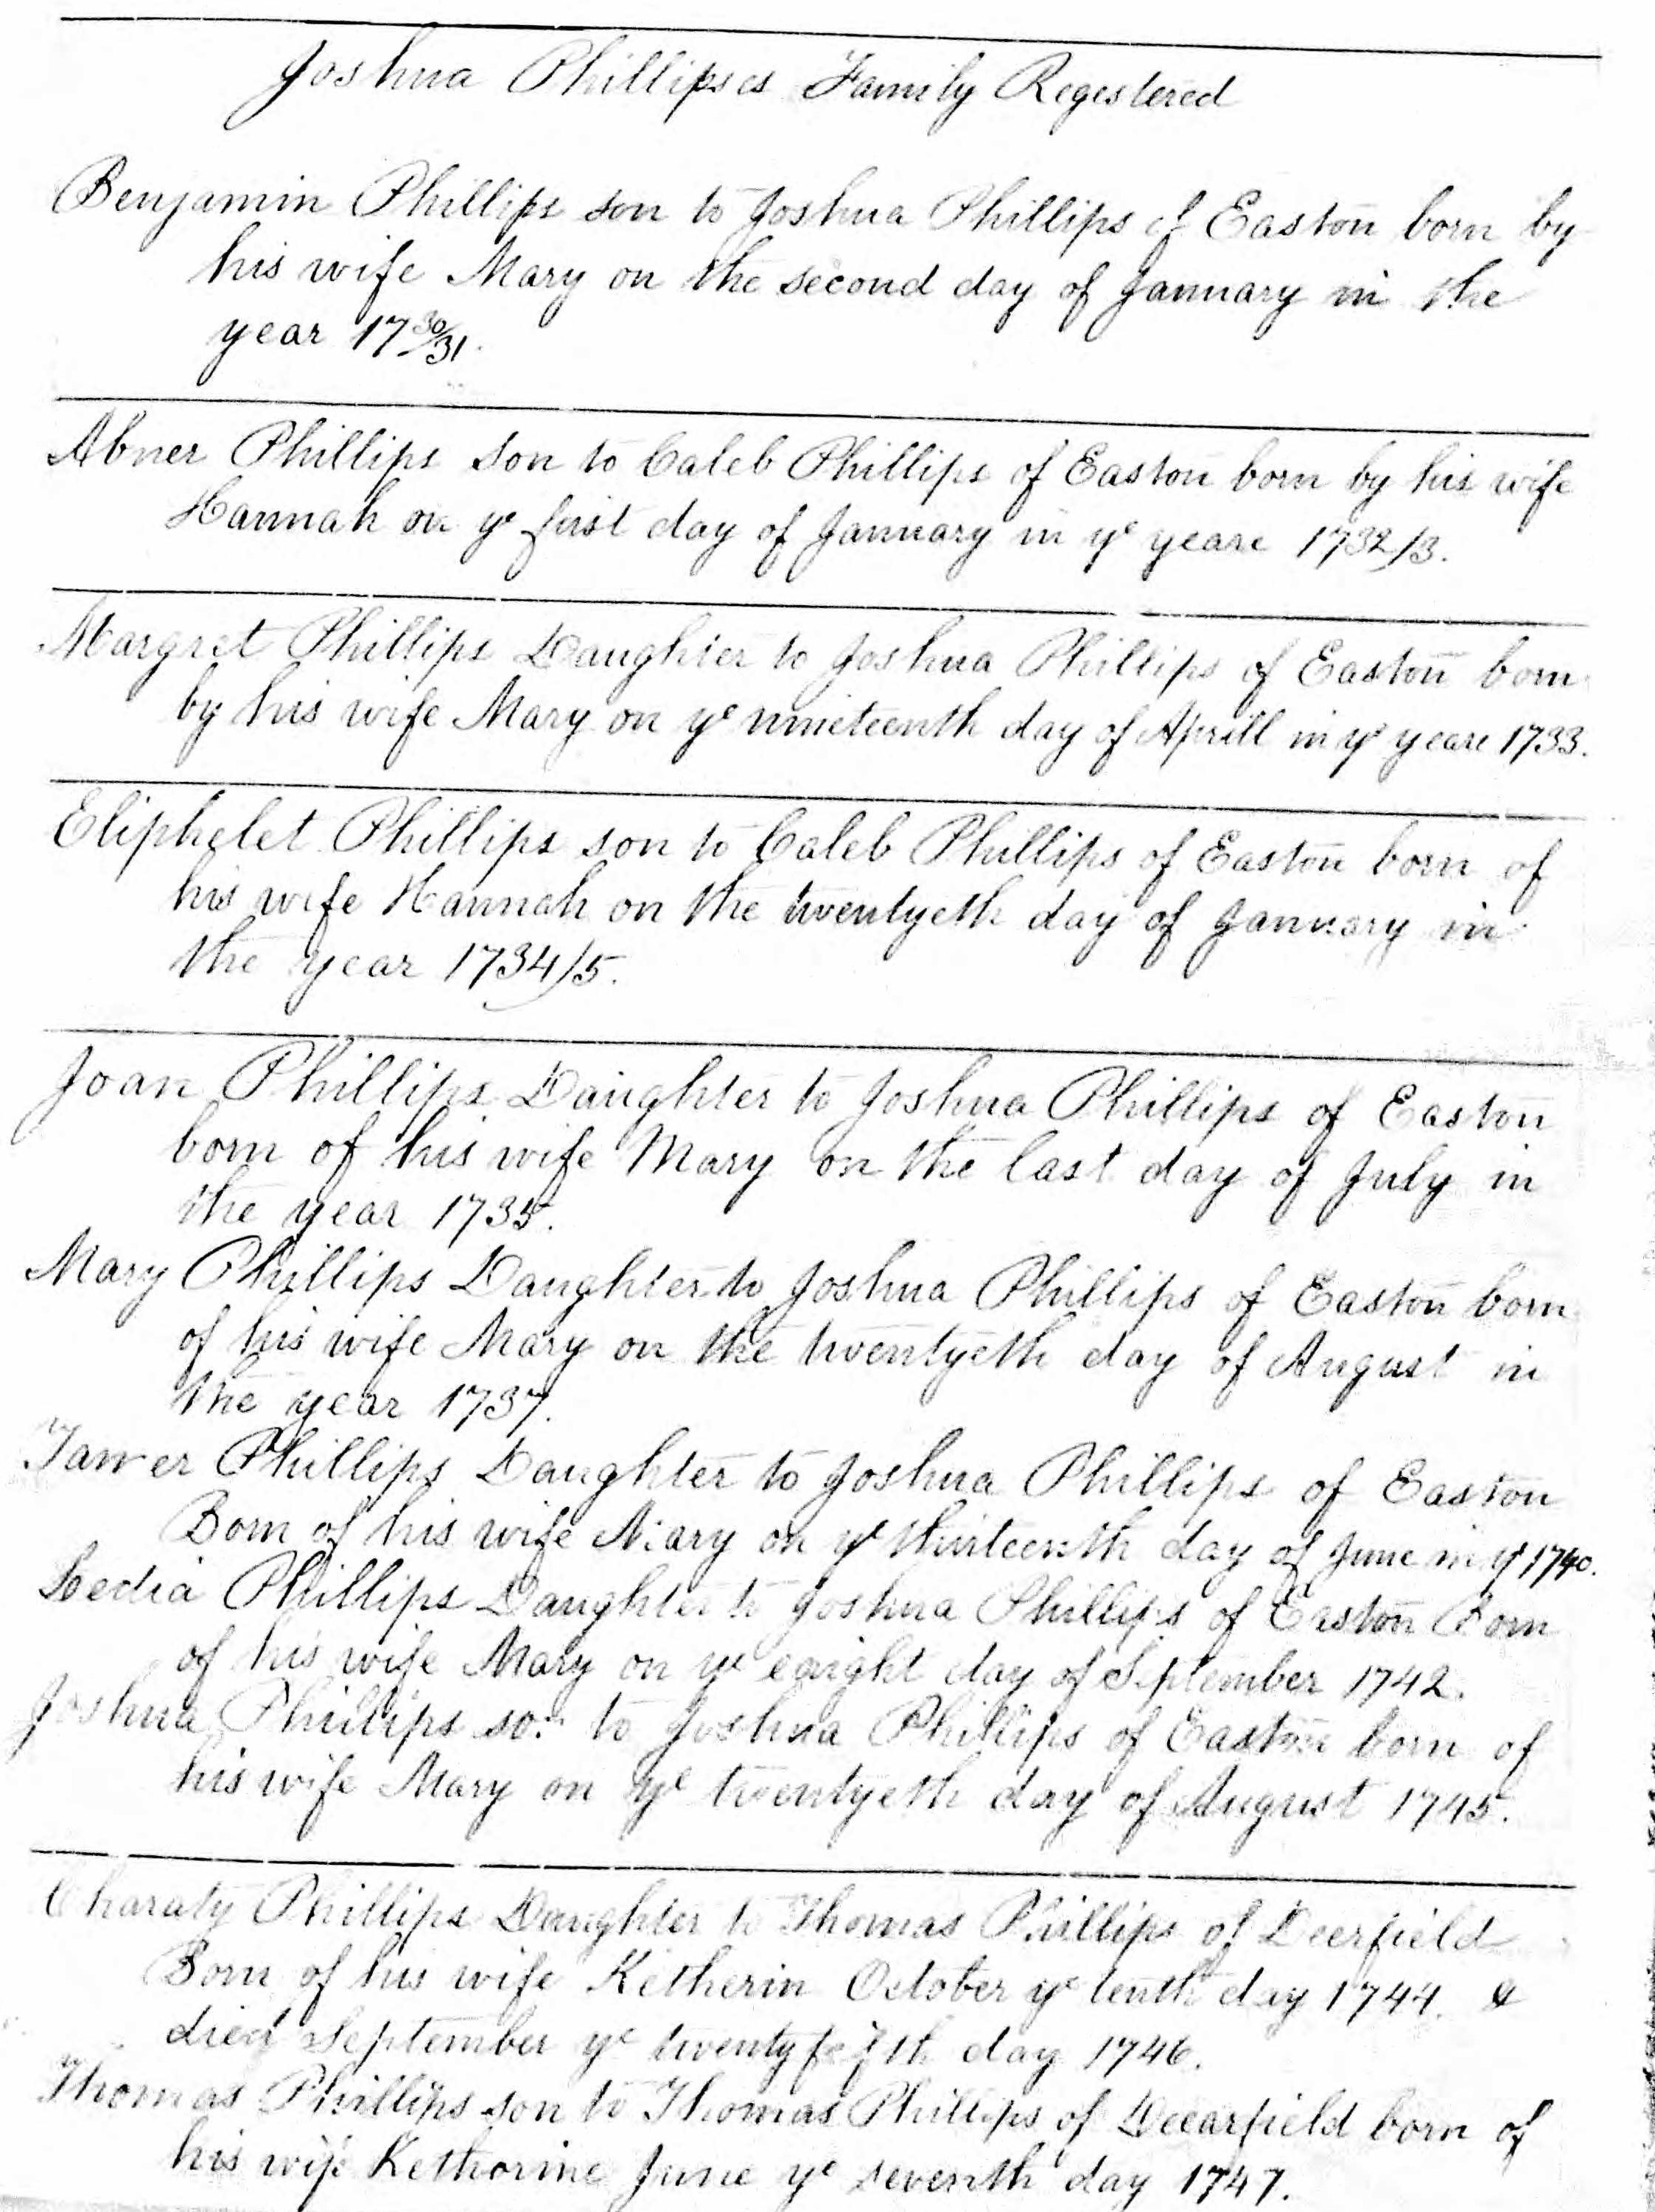 Joshua Phillipses Family Regestered
Benjamin Phillips son to Joshua Phillips of Easton born by
his wife Mary on the second day of January in the
year 17 30/31.
Abner Phillips son to Caleb Phillips of Easton born by his wife
Hannah on ye first day of January in ye yeare 1732/3.
Margret Phillips Daughter to Joshua Phillips of Easton born
by his wife Mary on ye nineteenth day of Aprill in ye yeare 1733.
Eliphelet Phillips son to Caleb Phillips of Easton born of
his wife Hannah on the twentyeth day of January in
the year 1734/5.
Joan Phillips Daughter to Joshua Phillips of Easton
born of his wife Mary on the last day of July in
the year 1735.
Mary Phillips Daughter to Joshua Phillips of Easton born
of his wife Mary on the twentyeth day of August in
the year 1737.
Phillips Daughter to Joshua Phillips of Easton
Born of his wife Mary on ye thirteenth day of June in ye 1740.
Ledia Phillips Daughter to Joshua Phillips of Easton Born
of his wife Mary on ye eaight day of September 1742.
Joshua Phillips son to Joshua Phillips of Easton born of
his wife Mary on ye twentyeth day of August 1745.
Charaty Phillips Daughter to Thomas Phillips of Deerfield
Born of his wife Ketherin October ye tenth day 1744. &
died September ye twentyfeifth day 1746.
Thomas Phillips son to Thomas Phillips of Deearfield born of
his wife Kethorine June ye seventh day 1747.